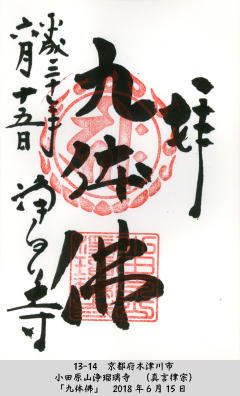 奉拝
九体佛
平成三十年
六月十五日
浄る里寺
13-14　京都府木津川市
小田原山浄瑠璃寺　（真言律宗）
「九体佛」　2018年6月15日